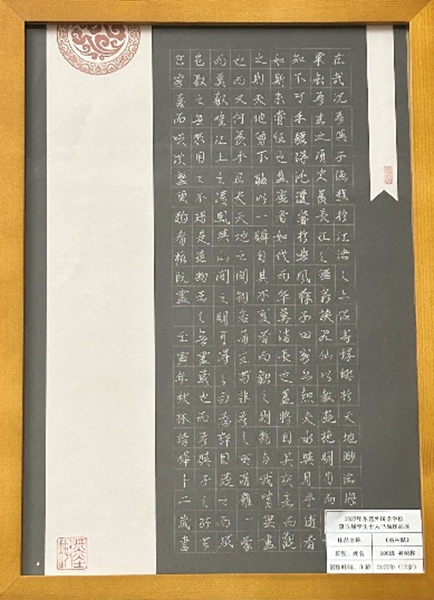 在哉況吾與子漁樵於江渚之上侶寄蜉蝣於天地渺滄海
粟哀吾生之須臾羨長江之無窮挾飛仙以遨抱明月而
知不可乎驟得託遺響於悲風蘇子曰客亦知夫水與月乎逝者
如斯未嘗往也盈虛者如代而卒莫消長也蓋將自其變而觀
之則天地曾不能以一瞬自其不變者而觀之則物與我皆無盡
也而又何羨乎且夫天地之間物各有主苟非吾之所有雖一毫
而莫取惟江上之清風與山間之明月耳得之而為聲目遇之而成
色取之無禁用之不竭是造物者之無盡藏也而吾與子之所共
客喜而笑洗盞更酌肴核既盡 壬寅年秋林 十二歲書
2022年 外国语学校
第五届学生个人书画作品展
作品名称 《赤壁赋》
班级、姓名
创作时间、年龄 2022年（12岁）